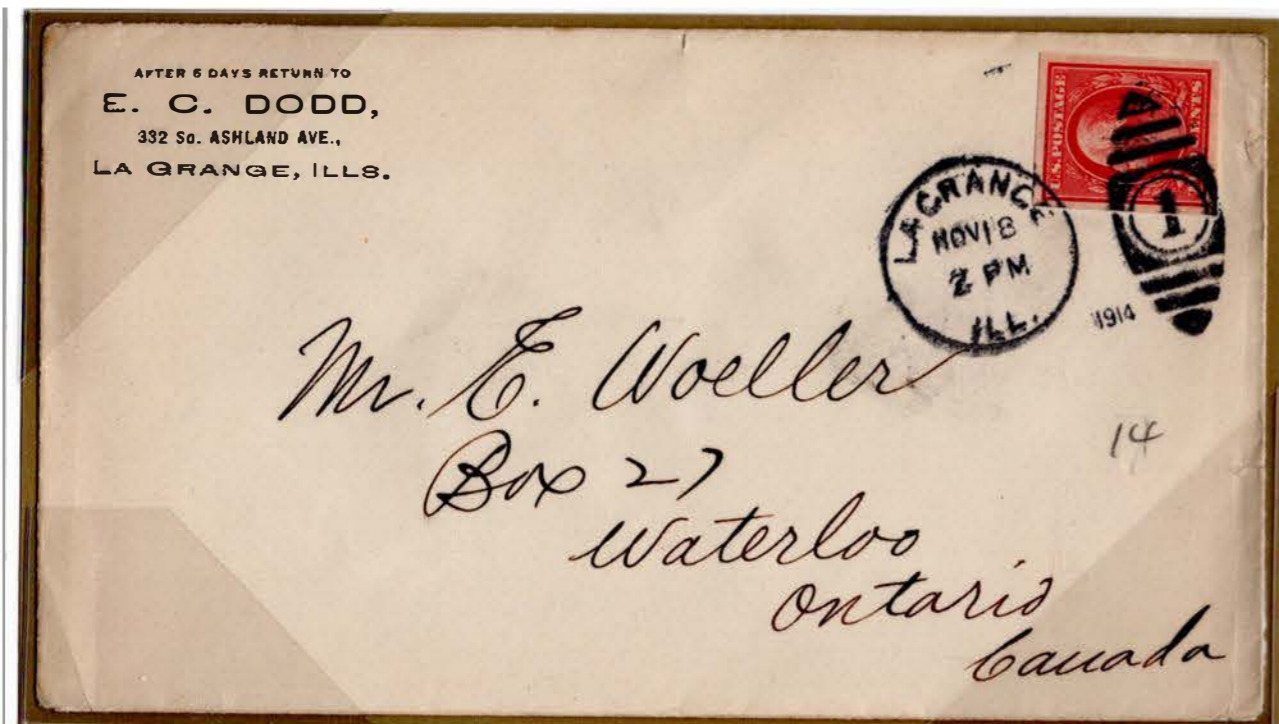 AFTER 5 DAYS RETURN TO
E. C. DODD,
332 So. ASHLAND AVE.,
LA GRANGE, ILLS.
U.S. POSTAGE
CENTS
LA GRANGE
NOV 18
2 PM
ILL.
1914
1
Mr. E. Woeller
Box 27
Waterloo
Ontario
Canada
14